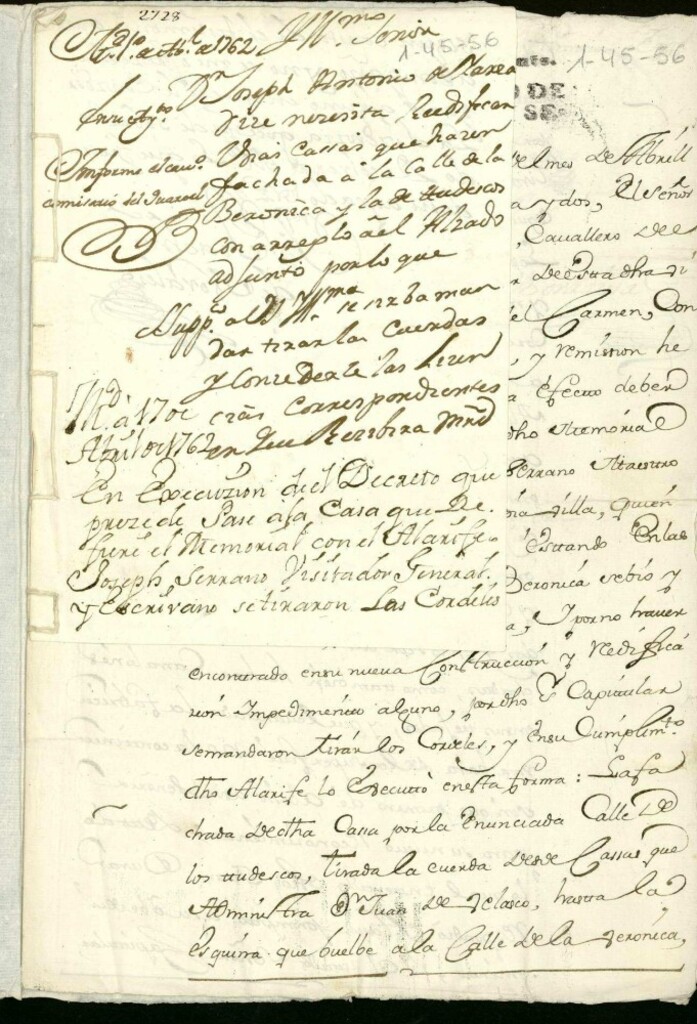 2728
1-45-56
Yll.mo Señor
M.d 1.o de Ab.l de 1762
D.n Joseph Antonio de Llarena
En su ay.to
dize necesita, Reedificar
Unas cassas que hazen
Informe el cav.o
comisario del Quartel
fachada a la Calle de la
Beronica y la de tudescos
con arreglo a el Alzado
adjunto por lo que
Supp.co a V Yll.ma se sirba man
dar tirar las cuerdas
y Concederle las Licen
cias Correspondientes
en que Recibira Mrd
M.d a 17 de
Abril de 1762
En Execuzion del Decreto que
prezede Pase a la Casa que Re-
fiere el Memorial con el Alarife
Joseph Serrano Visitador General
y Escrivano se tiraron Las Cordeles
1-45-56
DE
SE
el mes de Abrill
a y dos, El señor
Cavallero de
el Carmen, Con
y remission he
efecto deber
dho Memorial
Serrano Maestro
Villa, quien
Estando En las
Beronica sitio y
Y por no haver
encontrado en su nueva Construccion y Redifica
zion Impedimento alguno, por dho S.r Capitular
se mandaron tirar los Cordeles, y en su Cumplim.to
dho Alarife lo Executó en esta forma: La fa
chada de dha Cassa por la enunciada Calle De
los tudescos, tirada la cuerda desde Cassas que
Administra D.n Juan de Velasco, hasta la
Esquina que buelbe a la Calle de la Veronica,